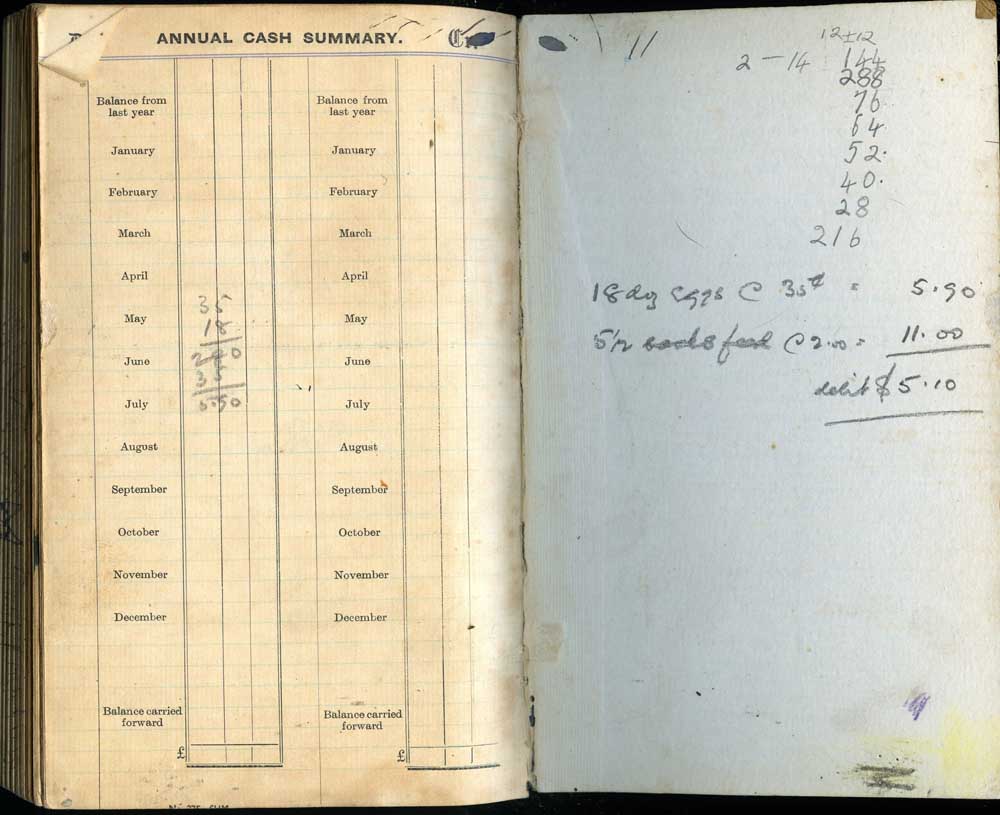 ANNUAL CASH SUMMARY.
Balance from last year
January
February
March
April
May
June
July
August
September
October
November
December
Balance carried forward
£
Balance from last year
January
February
March
April
May
June
July
August
September
October
November
December
Balance carried forward
£
35
18
5.90
11
12 ± 12
2 — 14 144
288
76
64
52.
40.
28
216
18 doz eggs @ 35¢ = 5.90
5½ feed @ 2.00 = 11.00
debit $5.10